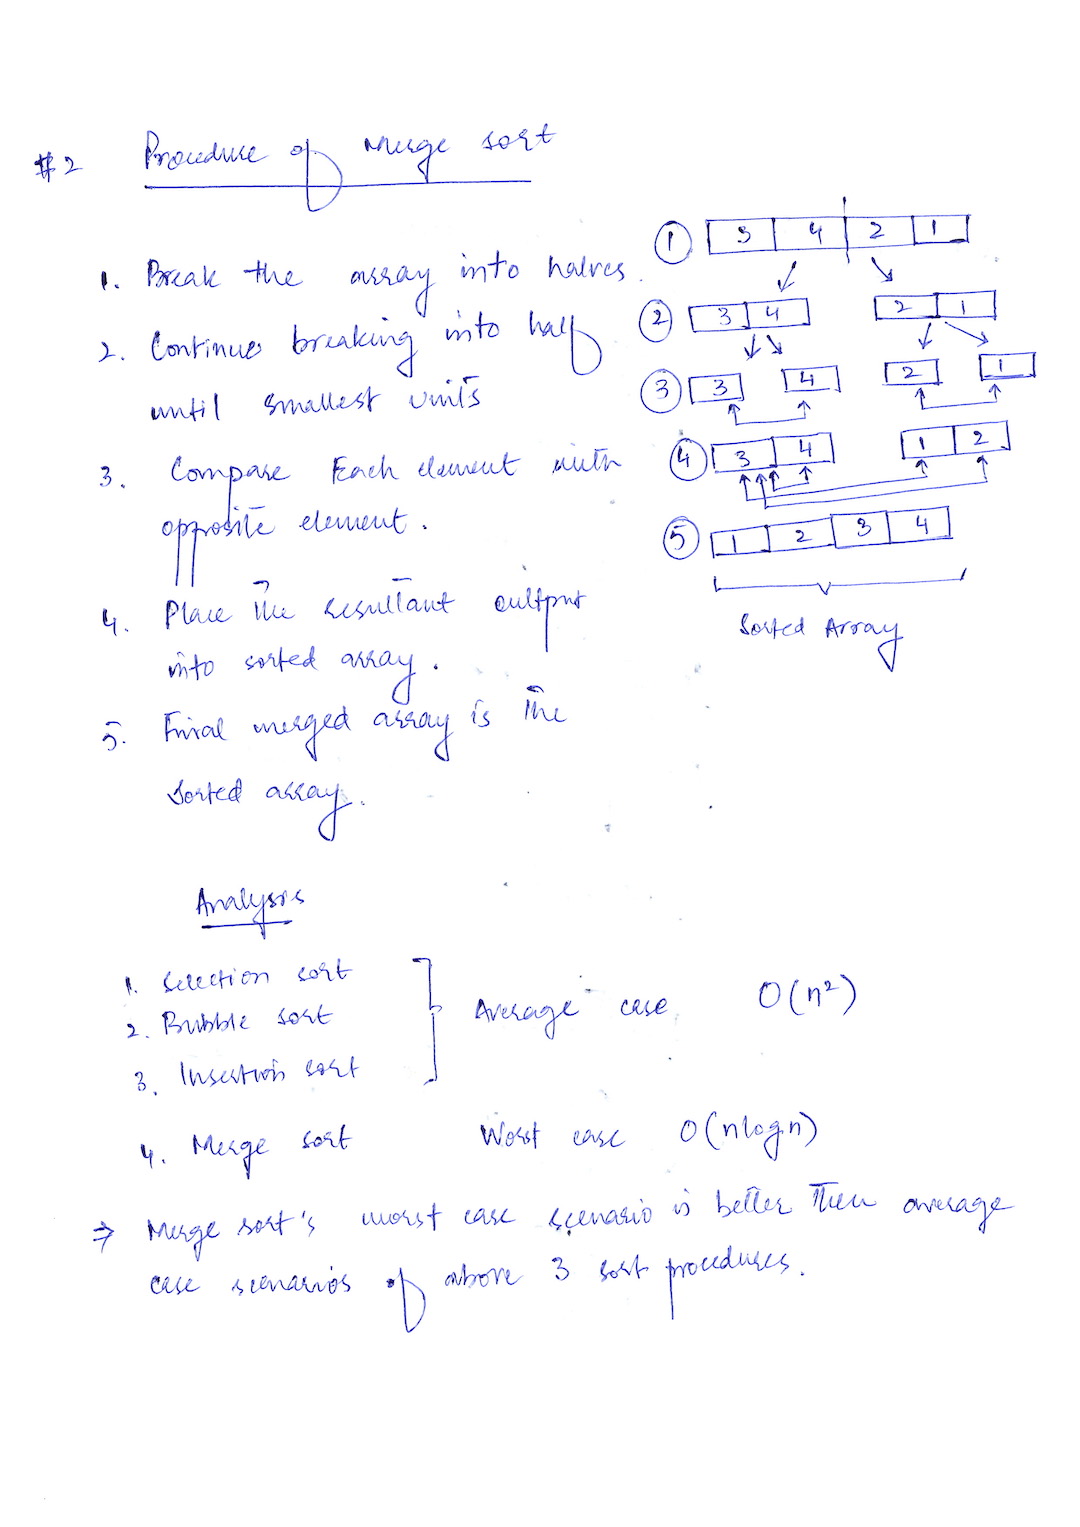 #2 Procedure of Merge sort
1. Break the array into halves.
2. Continue breaking into half
until smallest units
3. Compare Each element with
opposite element.
4. Place the resultant output
into sorted array.
5. Final merged array is the
sorted array.
① 3 4 2 1
② 3 4 2 1
③ 3 4 2 1
④ 3 4 1 2
⑤ 1 2 3 4
Sorted Array
Analysis
1. Selection sort
2. Bubble sort
3. Insertion sort
Average case O(n²)
4. Merge sort Worst case O(nlogn)
⇒ Merge sort's worst case scenario is better then average
case scenarios of above 3 sort procedures.